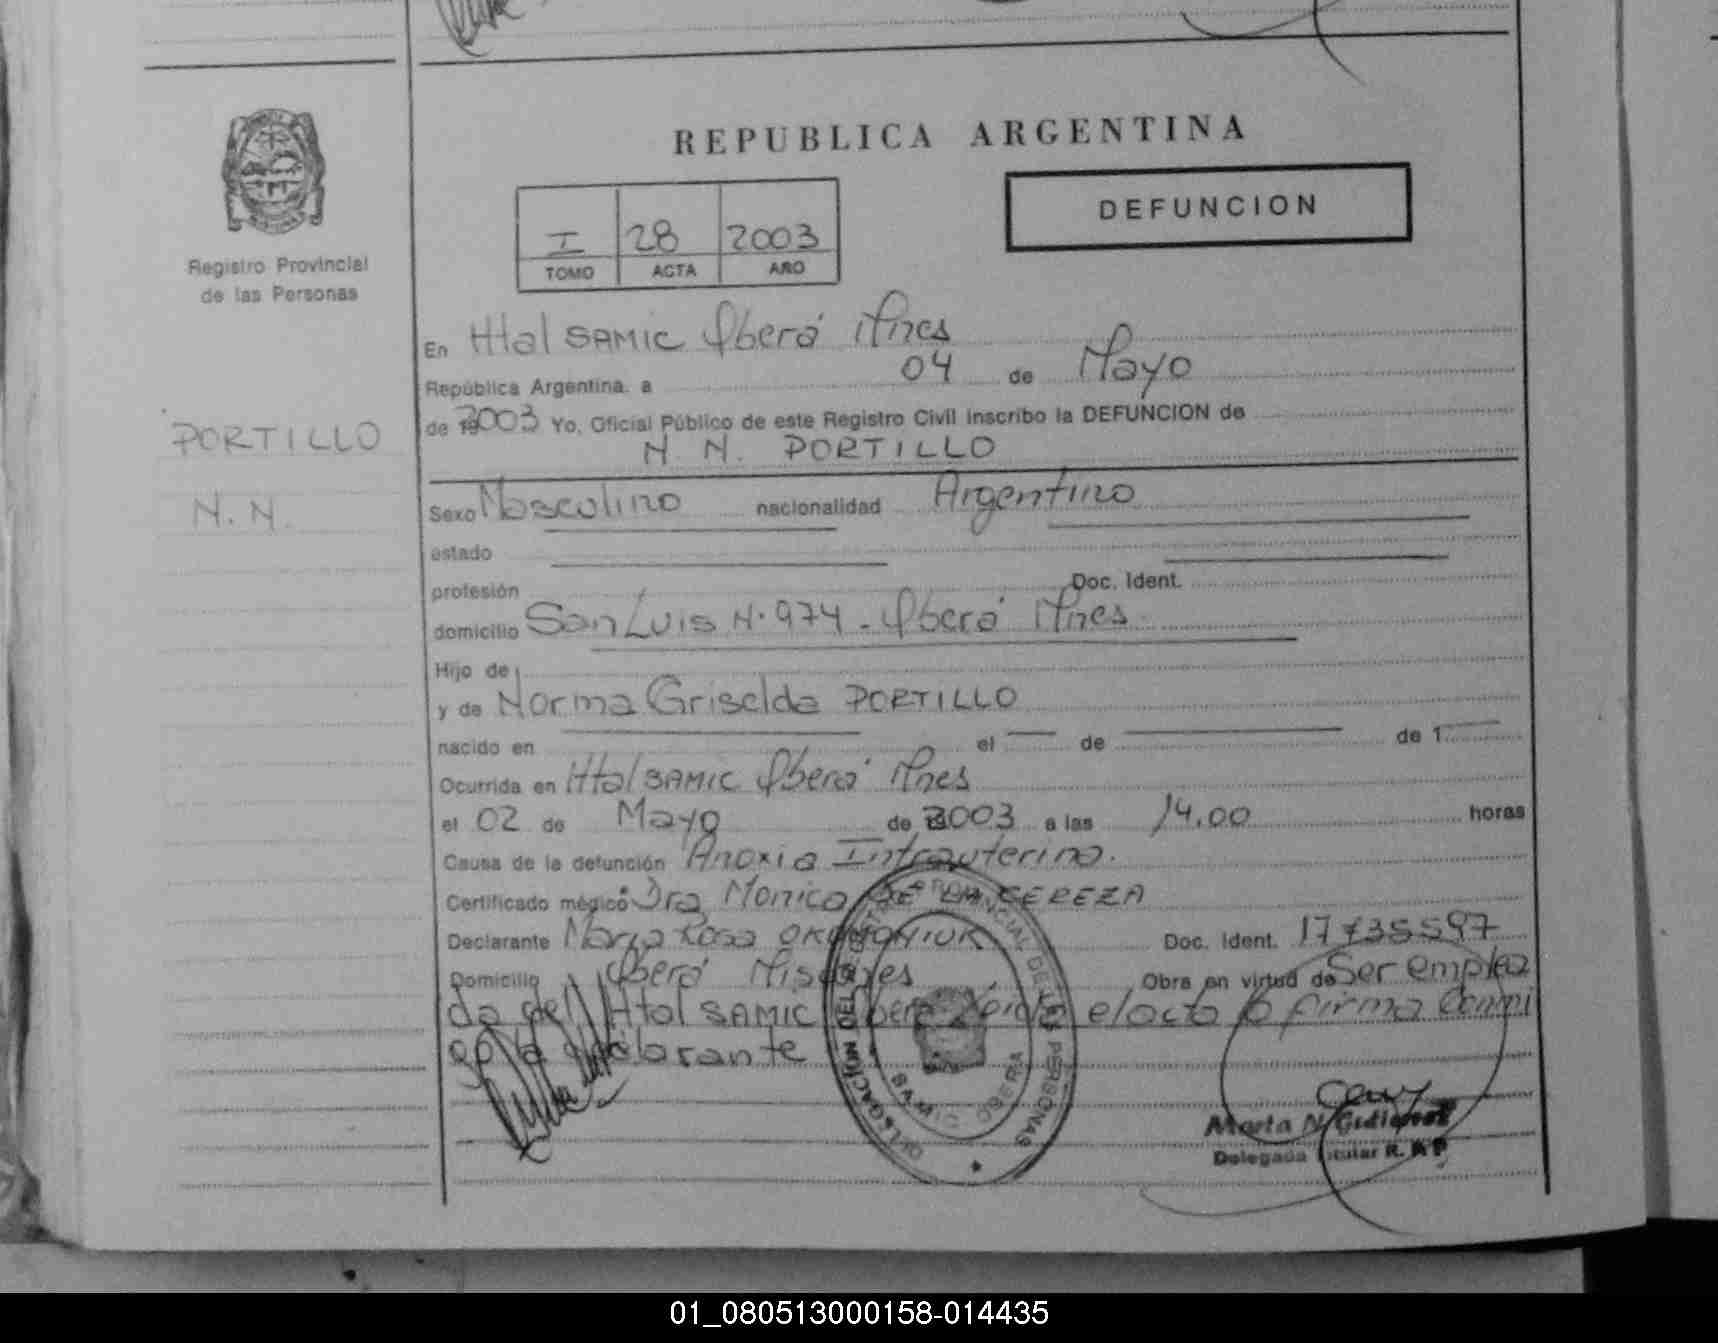 REPUBLICA ARGENTINA
DEFUNCION
I 28 2003
TOMO ACTA AÑO
Registro Provincial
de las Personas
PORTILLO
N. N.
En Htal SAMIC Oberá Mnes
República Argentina, a 04 de Mayo
de 2003 Yo, Oficial Público de este Registro Civil inscribo la DEFUNCION de
N. N. PORTILLO
Sexo Masculino nacionalidad Argentino
estado
profesión Doc. Ident.
domicilio San Luis N. 974 - Oberá Mnes
Hijo de
y de Norma Griselda PORTILLO
nacido en el de de 1
Ocurrida en Htal SAMIC Oberá Mnes
el 02 de Mayo de 2003 a las 14.00 horas
Causa de la defunción Anoxia Intrauterina.
Certificado médico Dra Monica CEREZA
Declarante Maria Rosa Doc. Ident. 17735597
Domicilio Oberá Misiones Obra en virtud de Ser emplea
da del Htal SAMIC Oberá Leida el acta la firma Conmi
go la declarante
DELEGACION DEL REGISTRO PROVINCIAL DE LAS PERSONAS
S.A.M.I.C. OBERA
Marta N. Gutierrez
Delegada Titular R. P
01_080513000158-014435